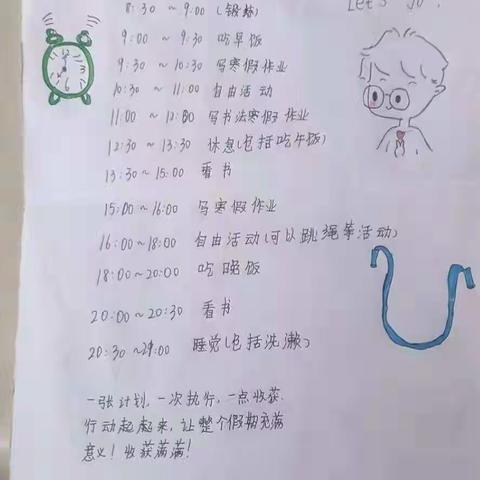 8:30 ~ 9:00 (锻炼)
Let's go!
9:00 ~ 9:30 吃早饭
9:30 ~ 10:30 写寒假作业
10:30 ~ 11:00 自由活动
11:00 ~ 12:00 写书法寒假作业
12:30 ~ 13:30 休息(包括吃午饭)
13:30~15:00 看书
15:00~16:00 写寒假作业
16:00~18:00 自由活动(可以跳绳等活动)
18:00~20:00 吃晚饭
20:00~20:30 看书
20:30~21:00 睡觉(包括洗漱)
一张计划,一次执行,一点收获.
行动起起来,让整个假期充满
意义!收获满满!